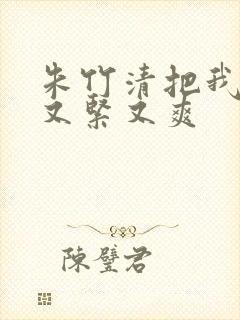 朱竹清把我
又紧又爽
陈璧君